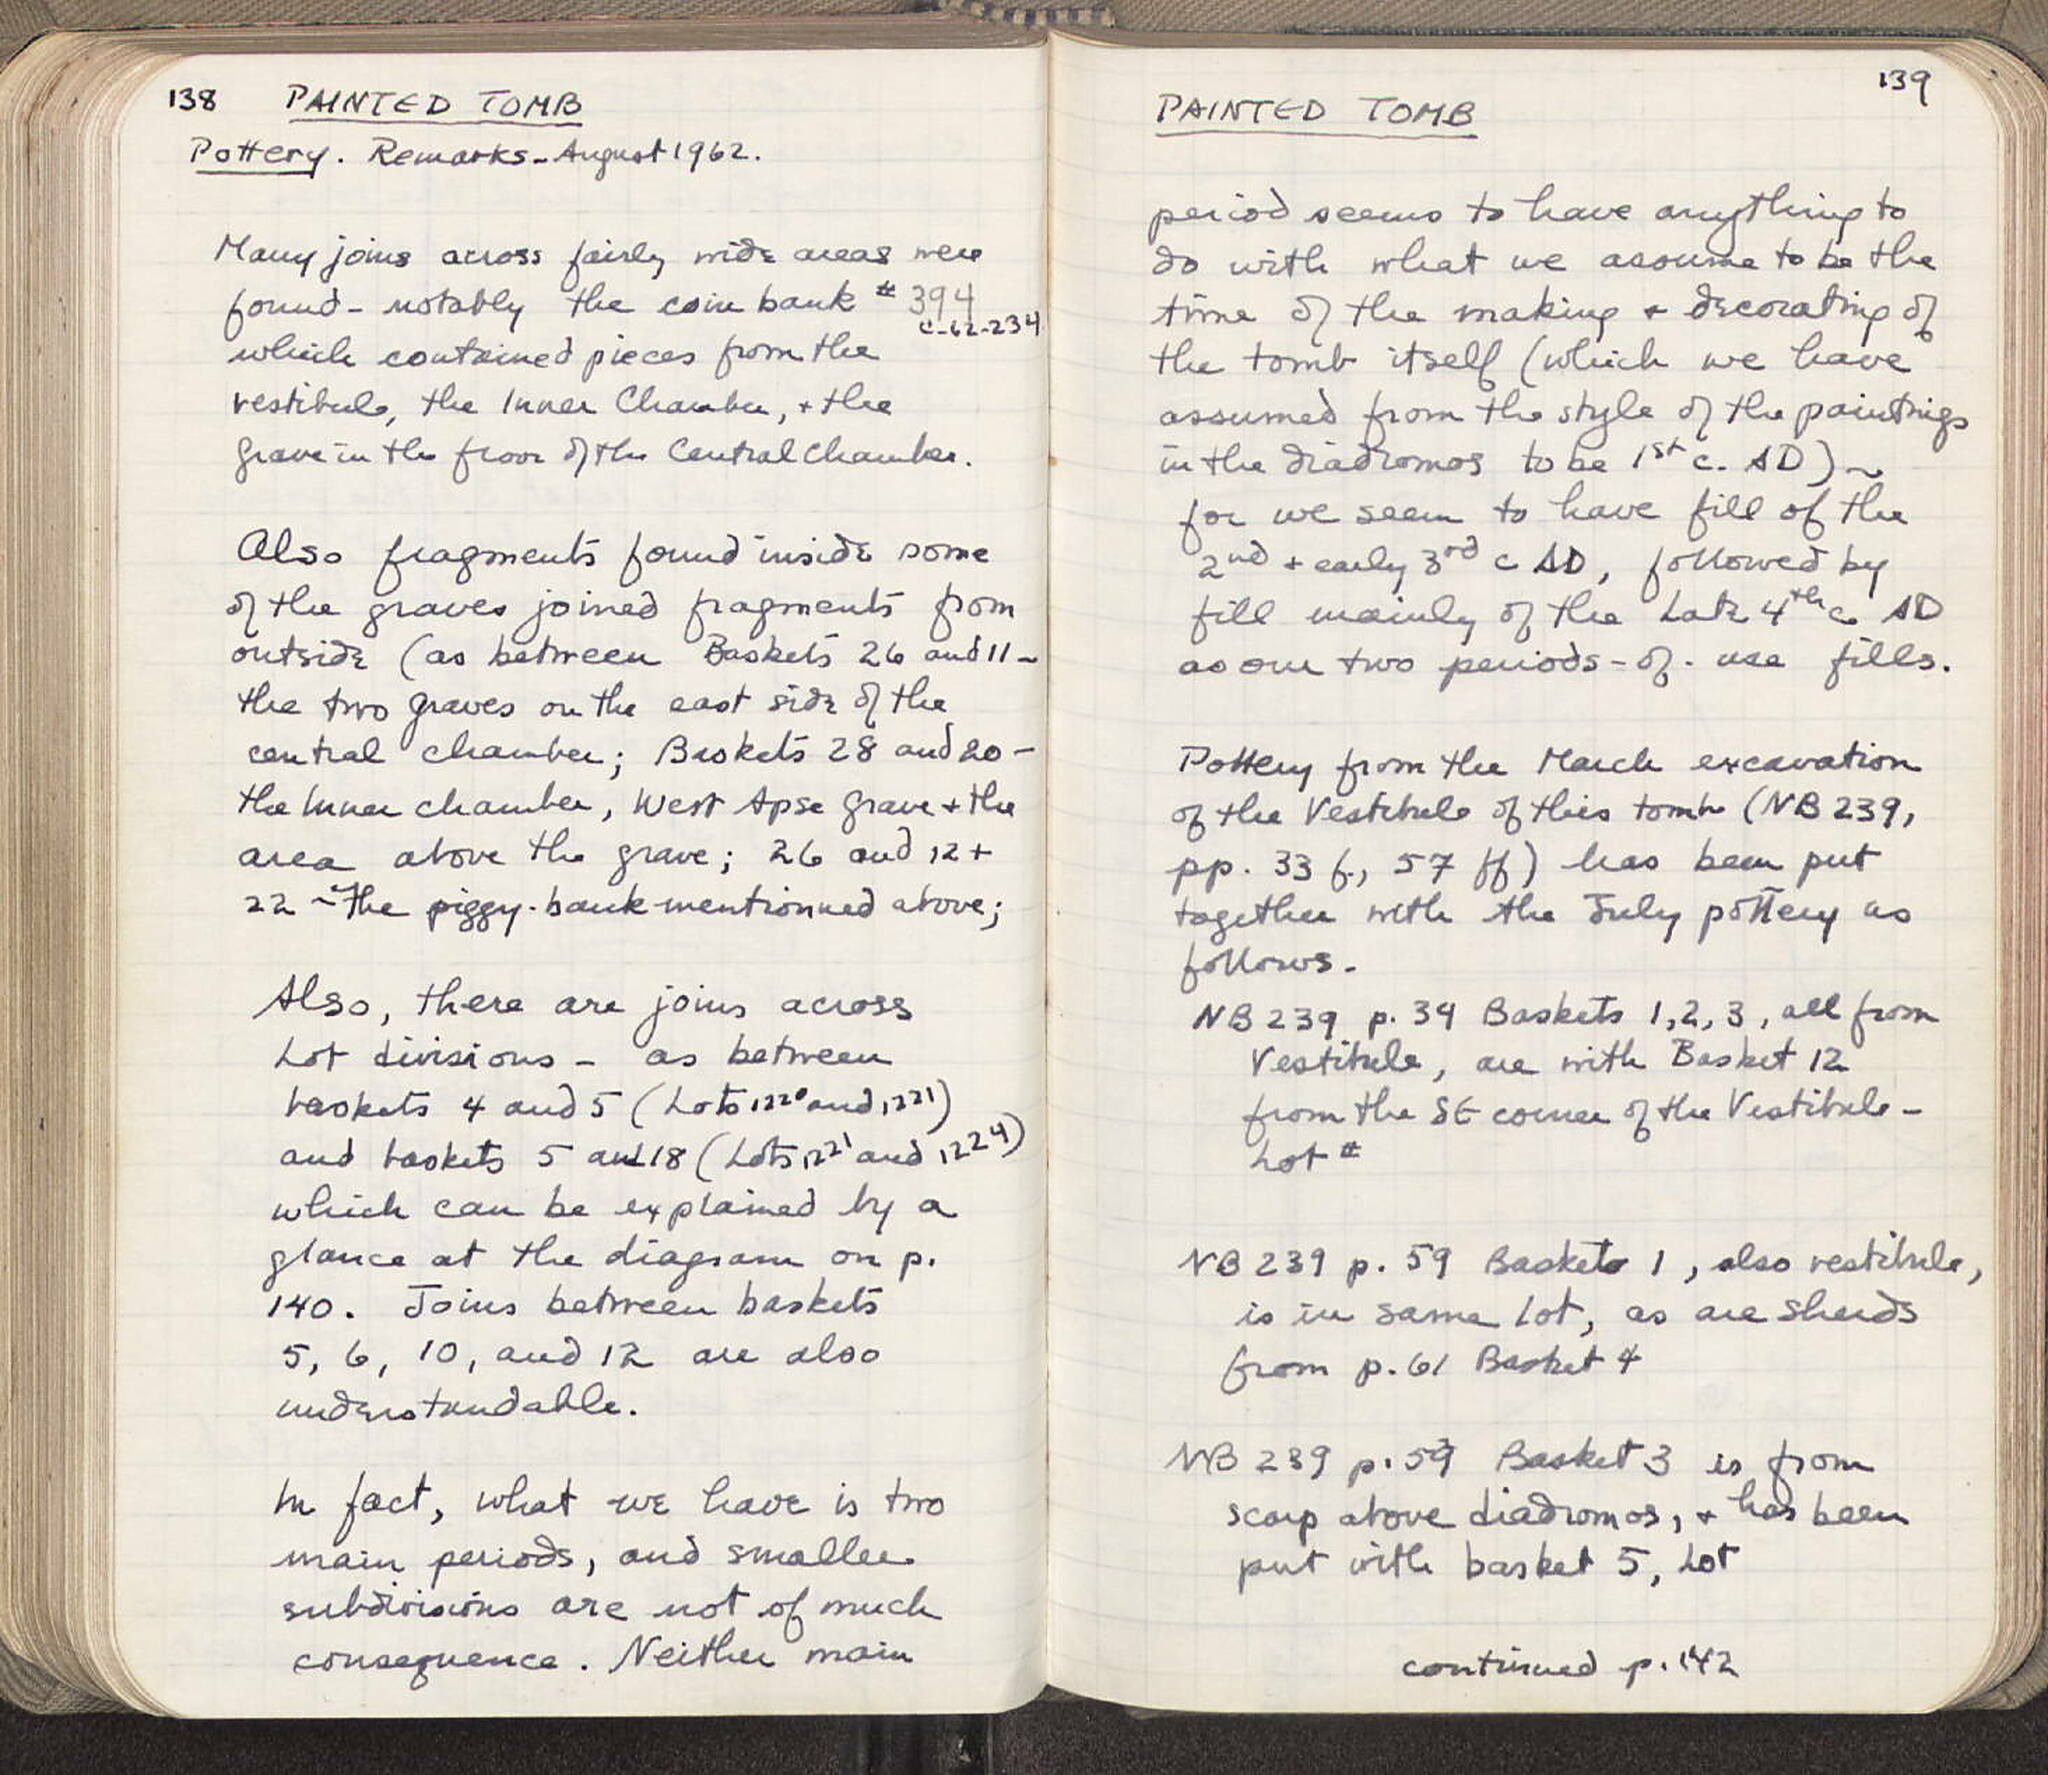 138 PAINTED TOMB
Pottery. Remarks - August 1962.
Many joins across fairly wide areas were
found - notably the coin bank # 394
C-62-234
which contained pieces from the
vestibule, the Inner Chamber, + the
grave in the floor of the Central Chamber.
Also fragments found inside some
of the graves joined fragments from
outside (as between Baskets 26 and 11 -
the two graves on the east side of the
central chamber; Baskets 28 and 20 -
the Inner chamber, West Apse grave + the
area above the grave; 26 and 12 +
22 - the piggy-bank mentionned above;
Also, there are joins across
Lot divisions - as between
baskets 4 and 5 (Lots 1220 and 1221)
and baskets 5 and 18 (Lots 1221 and 1224)
which can be explained by a
glance at the diagram on p.
140. Joins between baskets
5, 6, 10, and 12 are also
understandable.
In fact, what we have is two
main periods, and smaller
subdivisions are not of much
consequence. Neither main
139
PAINTED TOMB
period seems to have anything to
do with what we assume to be the
time of the making + decorating of
the tomb itself (which we have
assumed from the style of the paintings
in the diadromos to be 1st c. AD) -
for we seem to have fill of the
2nd + early 3rd c AD, followed by
fill mainly of the Late 4th c. AD
as our two periods-of-use fills.
Pottery from the March excavation
of the Vestibule of this tomb (NB 239,
pp. 33 f., 57 ff) has been put
together with the July pottery as
follows.
NB 239 p. 34 Baskets 1, 2, 3, all from
Vestibule, are with Basket 12
from the SE corner of the Vestibule -
Lot #
NB 239 p. 59 Basket 1, also vestibule,
is in same Lot, as are sherds
from p. 61 Basket 4
NB 239 p. 59 Basket 3 is from
scarp above diadromos, + has been
put with basket 5, Lot
continued p. 142